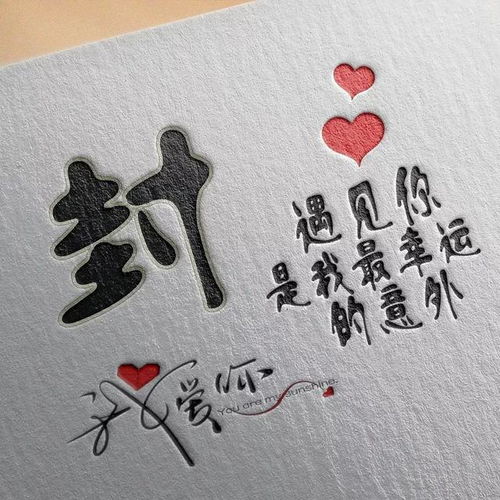 封
遇见你
是我最幸运
的意外
我爱你
You are my sunshine.